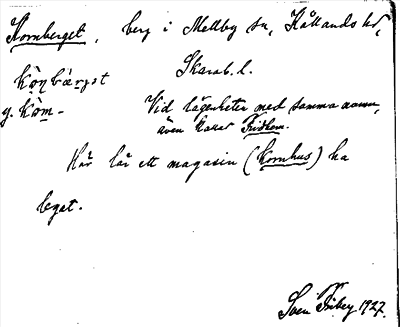 Kornberget, berg i Mellby sn, Kållands hd,
Skarab. l.
kò̀ṇbæ̀rjət
y. kòm-
Vid lägenheter med samma namn,
även kallat Fridhem.
Här låg ett magasin (kornhus) ha
legat.
Sven Friberg 1927.